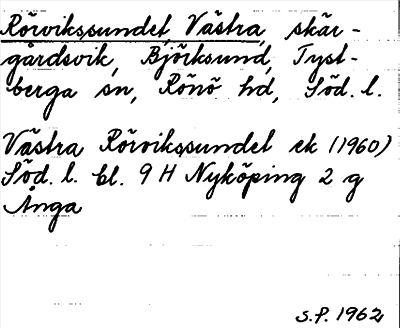 Rörvikssundet, Västra, skär-
gårdsvik, Björksund, Tyst-
berga sn, Rönö hd, Söd. l.
Västra Rörvikssundet ek (1960)
Söd. l. bl. 9 H Nyköping 2 g
Ånga
S.P. 1962